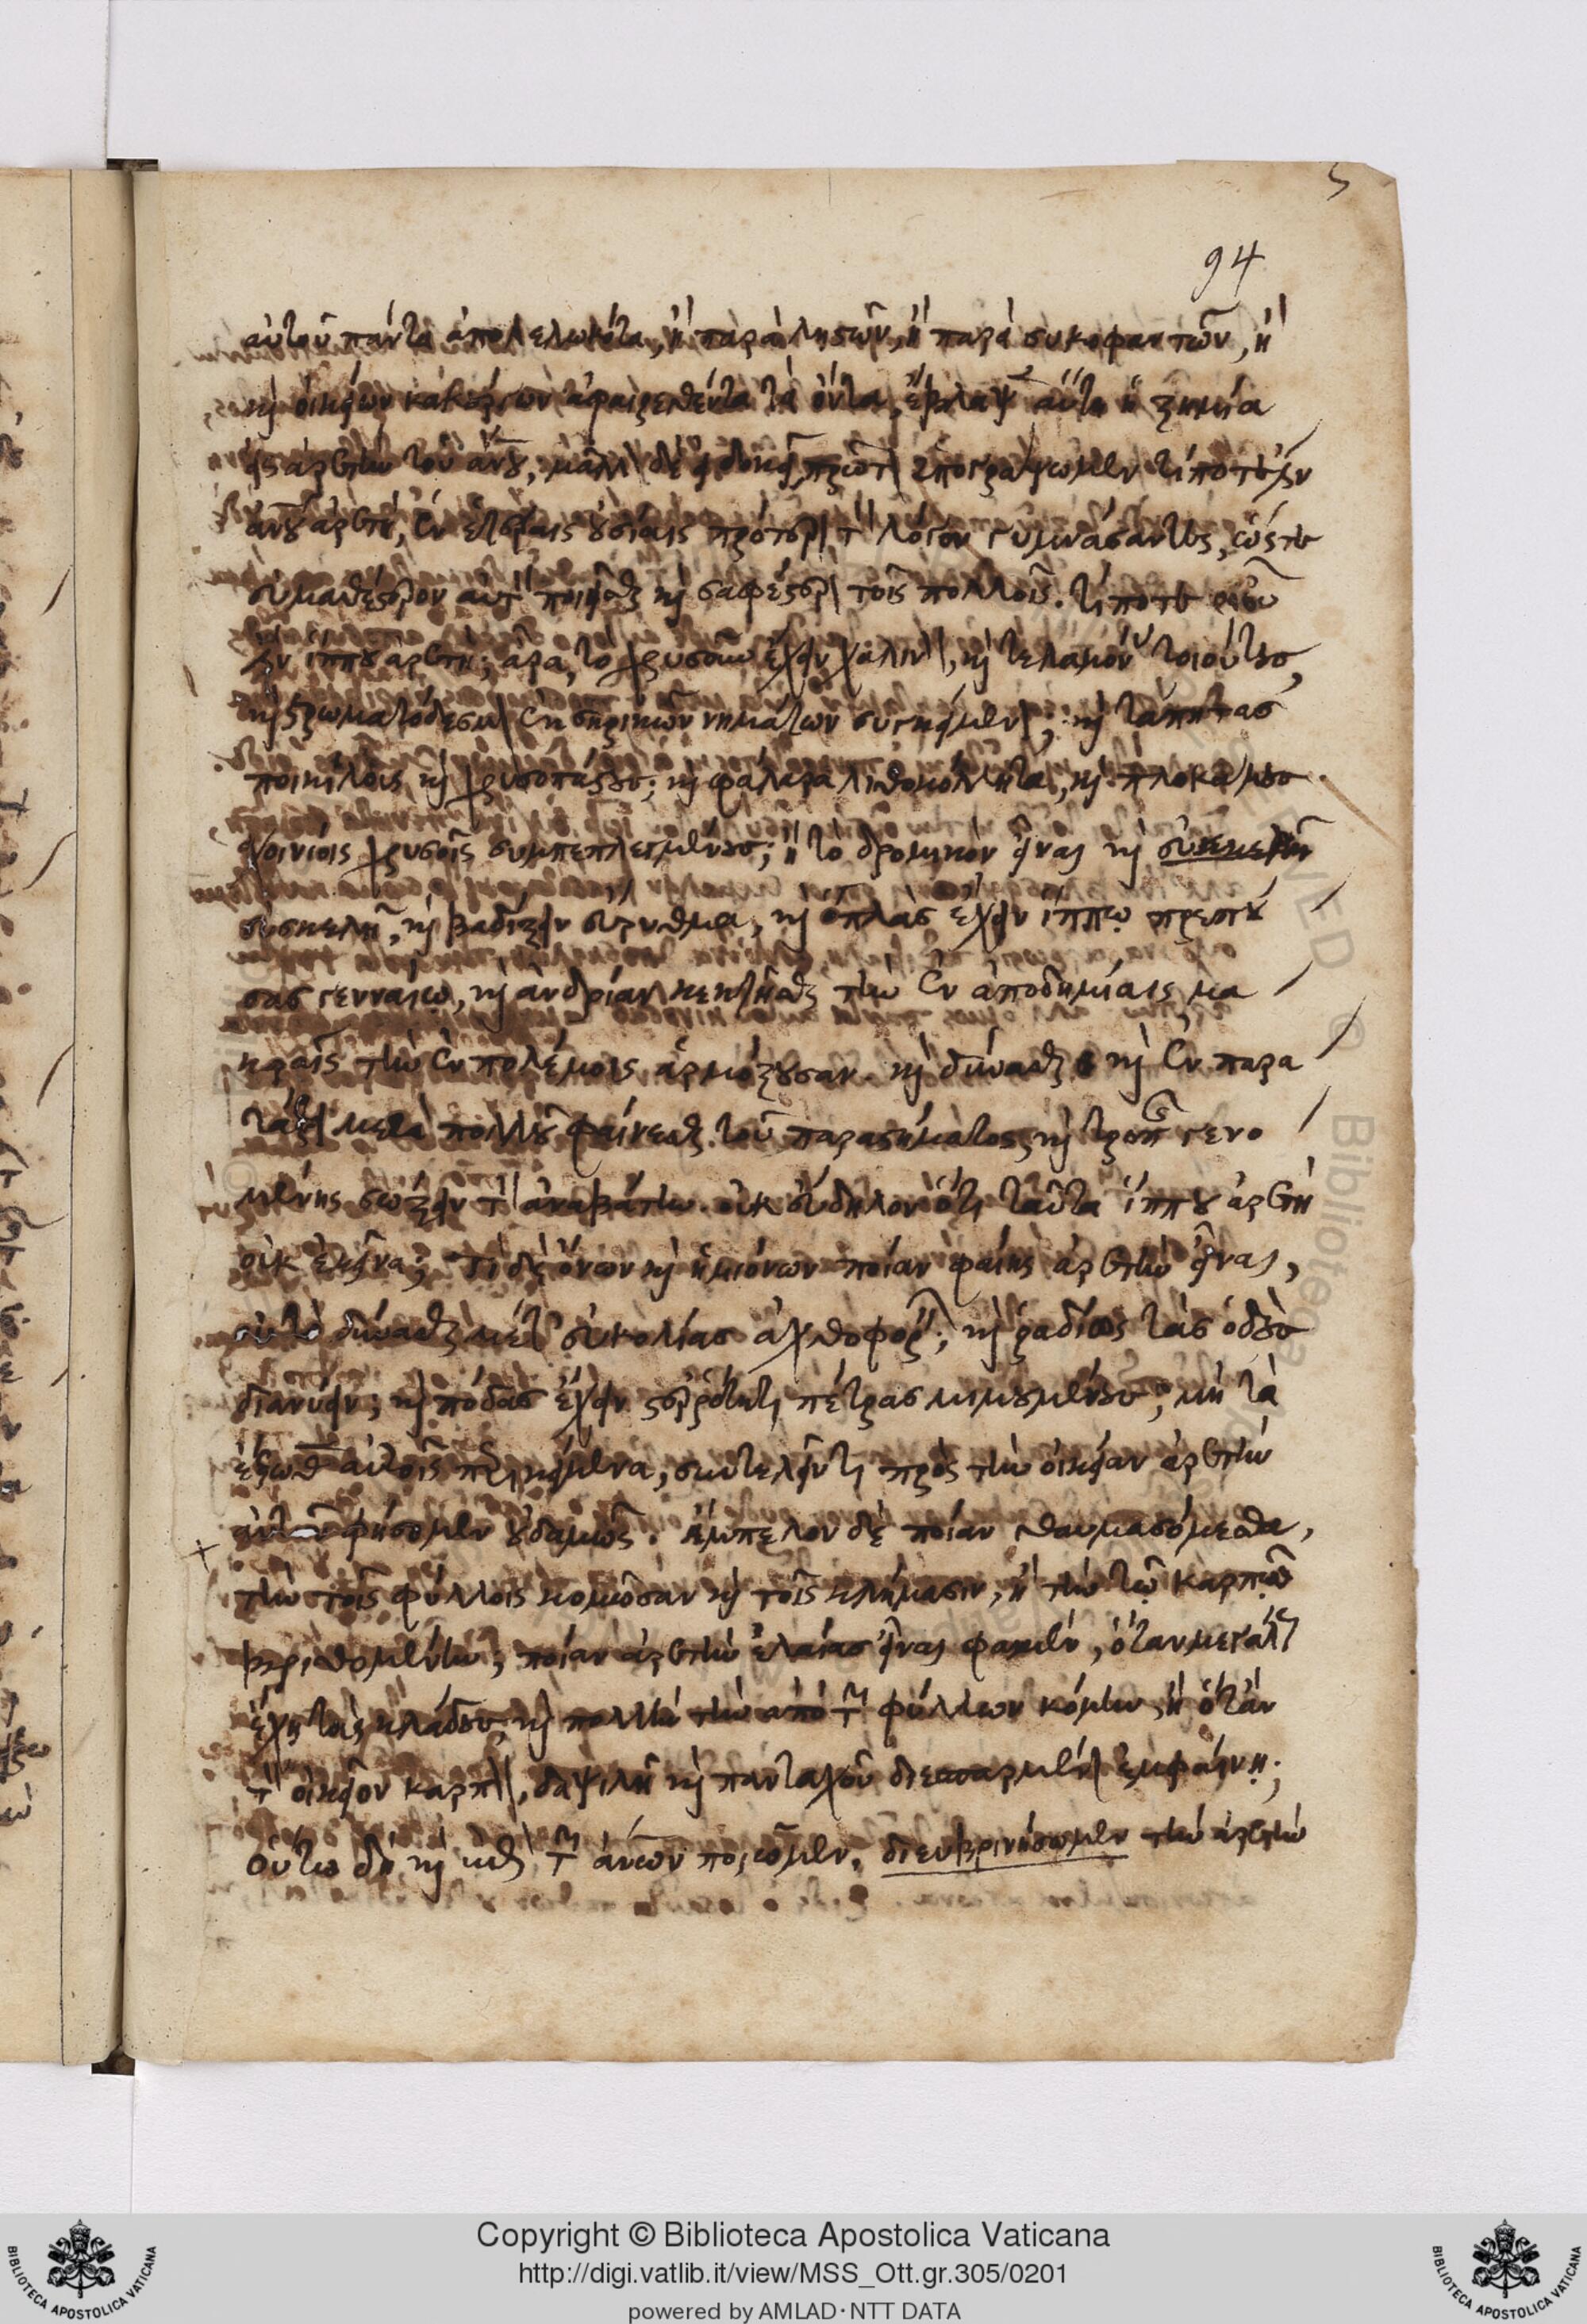 5
94
αὐτοῦ πάντα ἀπολελωκότα, ἢ παρὰ λῃστῶν, ἢ παρὰ συκοφαντῶν, ἢ
καὶ οἰκείων κακούργων ἀφαιρεθέντα τὰ ὄντα, ἔβλαψεν αὕτη ἡ ζημία
εἰς ἀρετὴν τοῦ ἀνθρώπου, μᾶλλον δὲ εἰ δοκεῖ, πρῶτον ὑπογράψωμεν τί ποτέ ἐστιν
ἀνθρώπου ἀρετή, ἐν ἑτέραις οὐσίαις πρότερον τὸν λόγον γυμνάσαντες, ὥστε
εὐμαθέστερον αὐτὸν ποιῆσαι καὶ σαφέστερον τοῖς πολλοῖς. τί ποτε οὖν
ἐστιν ἵππου ἀρετή; ἆρα, τὸ χρυσοῦν ἔχειν χαλινὸν, καὶ τελαμῶνας τοιούτους,
καὶ στρωματόδεσμον ἐκ σηρικῶν νημάτων συγκείμενον; καὶ τάπητας
ποικίλους καὶ χρυσοπάστους; καὶ φάλαρα λιθοκόλλητα, καὶ πλοκάμους
σχοινίοις χρυσοῖς συμπεπλεγμένους; ἢ τὸ δρομικὸν εἶναι καὶ
εὐσκελῆ, καὶ βαδίζειν εὔρυθμα, καὶ ὁπλὰς ἔχειν ἵππῳ πρεπού
σας γενναίῳ, καὶ ἀνδρίαν κεκτῆσθαι τὴν ἐν ἀποδημίαις μα
κραῖς τὴν ἐν πολέμοις ἁρμόζουσαν. καὶ δύνασθαι καὶ ἐν παρα
τάξει μετὰ πολλοῦ φαίνεσθαι τοῦ παραστήματος, καὶ τροπῆς γενο
μένης σώζειν τὸν ἀναβάτην. οὐκ εὔδηλον ὅτι ταῦτα ἵππου ἀρετὴ
οὐκ ἐκεῖνα; Τί δὲ ὄνων καὶ ἡμιόνων ποίαν φαίης ἀρετὴν εἶναι,
οὐ τὸ δύνασθαι μετ' εὐκολίας ἀχθοφορεῖν; καὶ ῥαδίως τὰς ὁδοὺς
διανύειν; καὶ πόδας ἔχειν στερρότητι πέτρας μιμουμένους; μὴ τὰ
ἔξωθεν αὐτοῖς περικείμενα, συντελεῖν τι πρὸς τὴν οἰκείαν ἀρετὴν
αὐτῶν φήσομεν οὐδαμῶς. Ἄμπελον δὲ ποίαν θαυμασόμεθα,
τὴν τοῖς φύλλοις κομῶσαν καὶ τοῖς κλήμασιν, ἢ τὴν τῷ καρπῷ
βριθομένην; ποίαν ἀρετὴν ἐλαίας εἶναι φαμὲν, ὅταν μεγάλους
ἔχῃ τοὺς κλάδους, καὶ πολλὴν τὴν ἀπὸ τῶν φύλλων κόμην, ἢ ὅταν
τὸν οἰκεῖον καρπὸν, δαψιλῆ καὶ πανταχοῦ διεσπαρμένον ἐμφαίνῃ;
Οὕτω δὴ καὶ κατὰ τῶν ἀνθρώπων ποιῶμεν, διευκρινήσωμεν τὴν ἀρετὴν
Copyright © Biblioteca Apostolica Vaticana
http://digi.vatlib.it/view/MSS_Ott.gr.305/0201
powered by AMLAD·NTT DATA
BIBLIOTECA APOSTOLICA VATICANA
BIBLIOTECA APOSTOLICA VATICANA